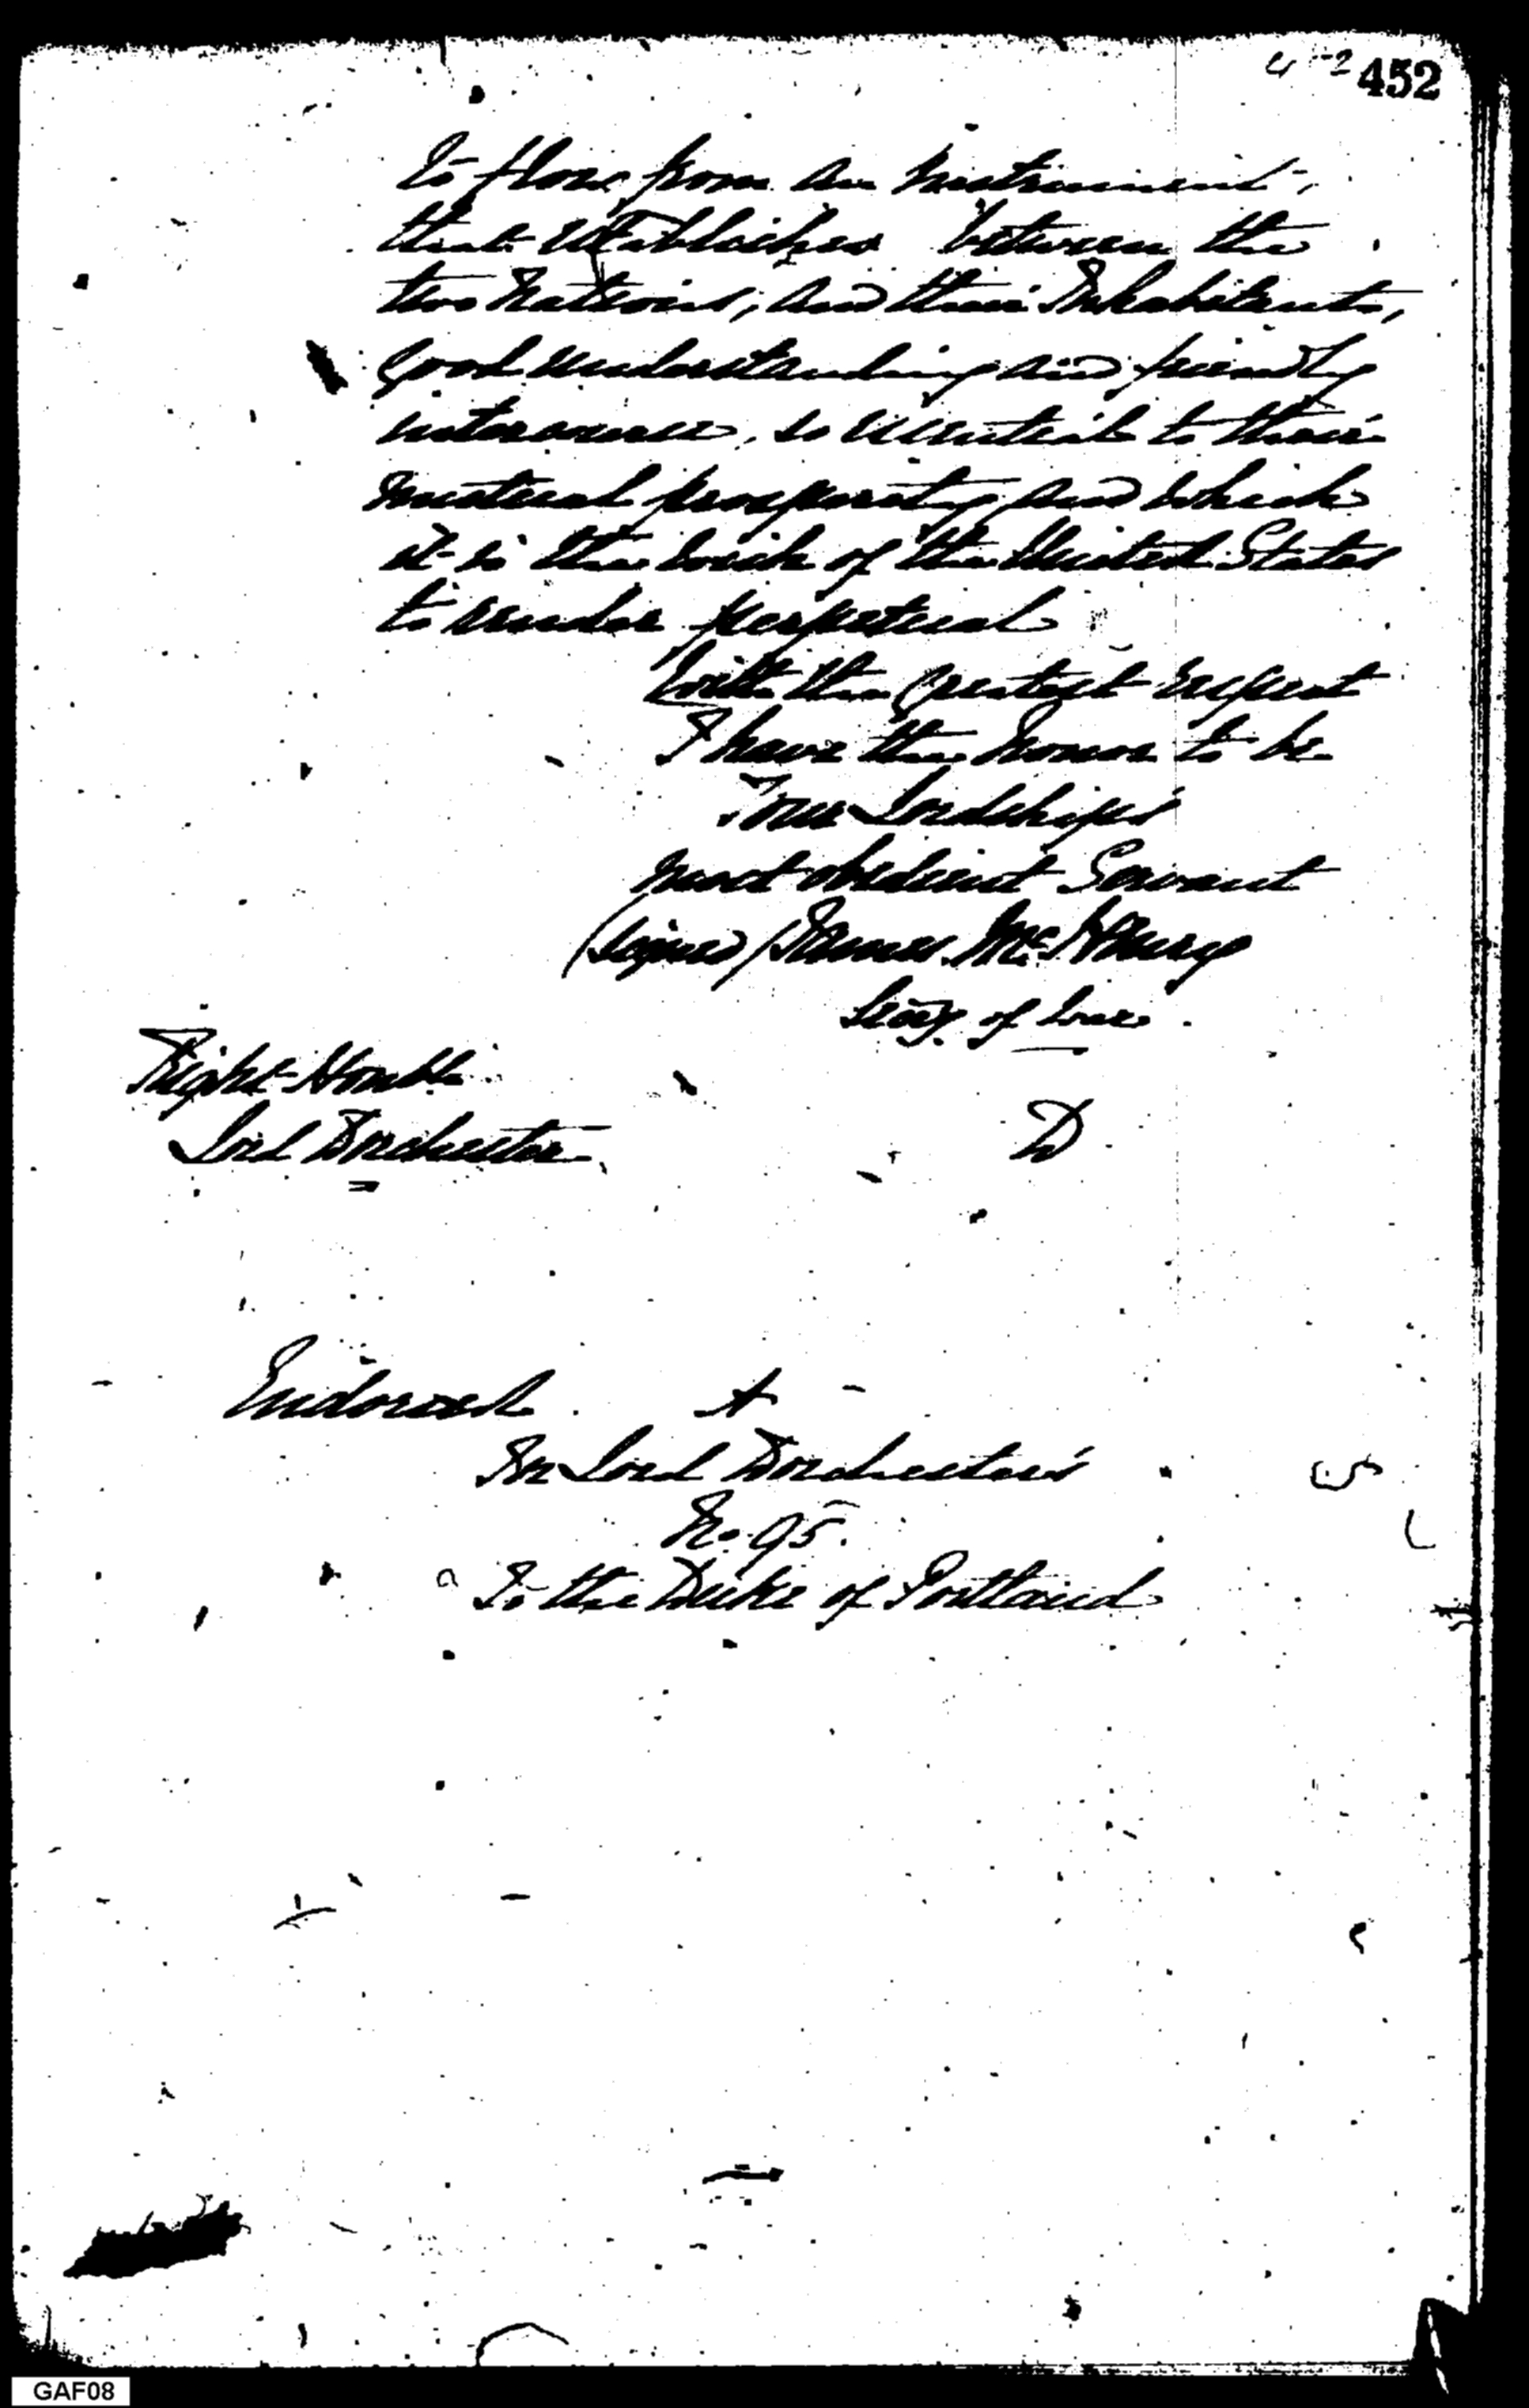 452
to flow from an instrument,
that establishes between the
two Nations, and their Inhabitants,
good understanding and friendly
intercourse, so essential to their
mutual prosperity and which
it is the wish of the United States
to render perpetual
With the greatest respect
I have the honor to be
Your Lordship's
most obedient Servant
(Signed) James McHenry
Secry. of War.
Right Honble
Lord Dorchester.
D
Endorsed. A
In Lord Dorchester's
No. 95.
To the Duke of Portland
GAF08